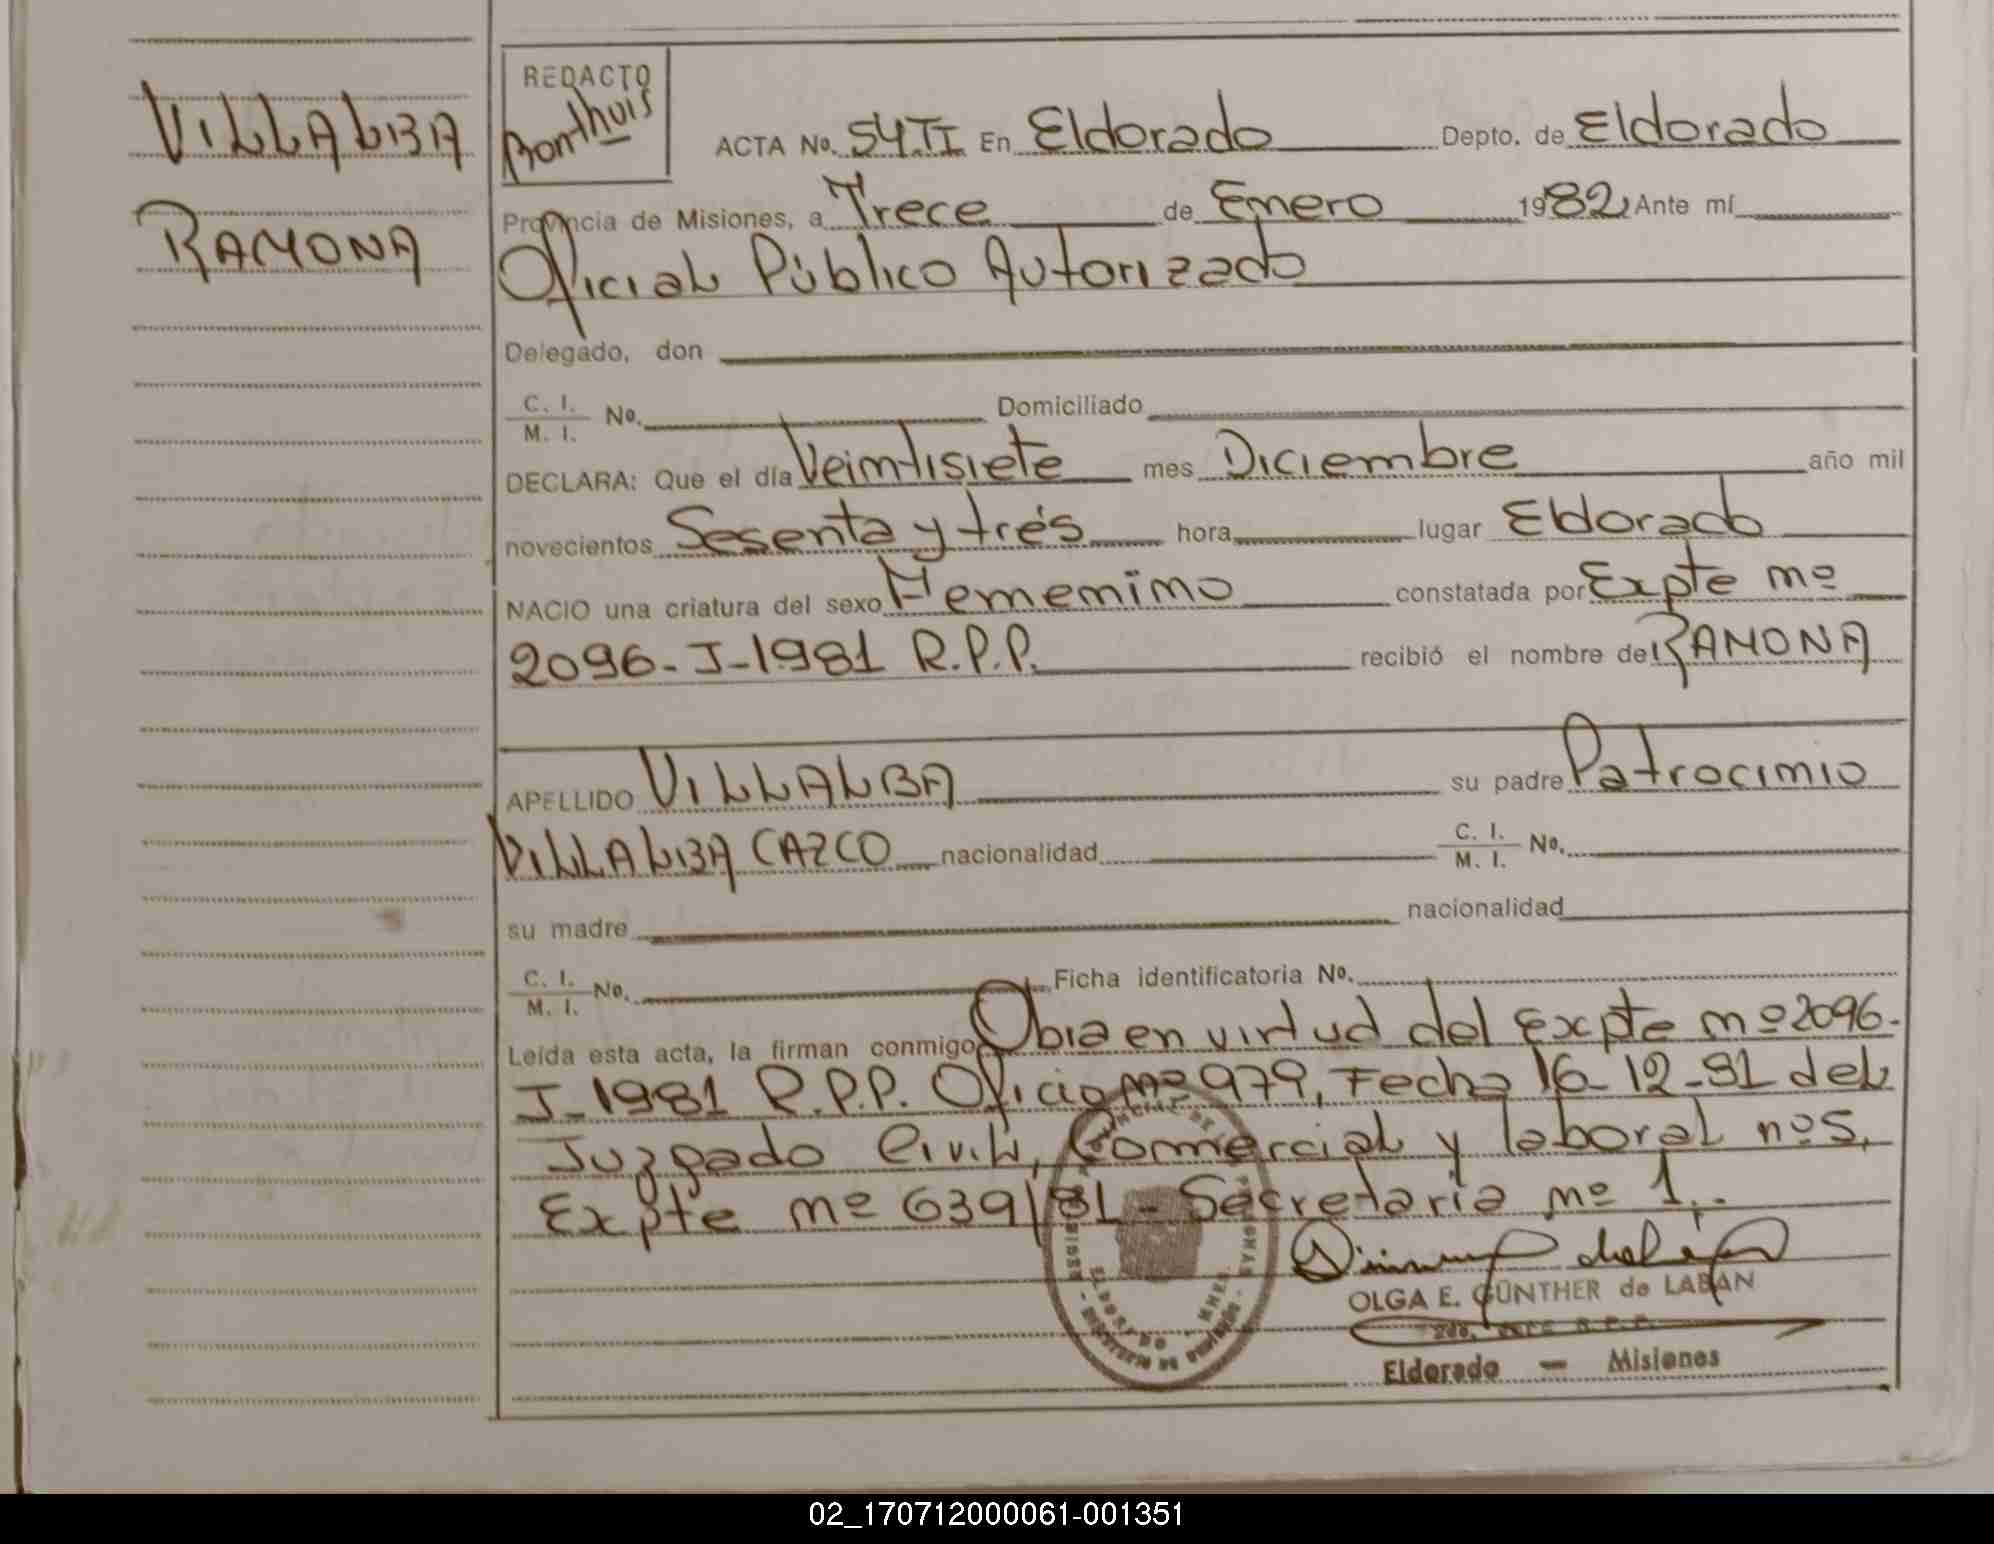 VILLALBA
RAMONA
REDACTO
Bonthuis
ACTA No. 54.TI En Eldorado Depto. de Eldorado
Provincia de Misiones, a Trece de Enero 1982 Ante mí
Oficial Público Autorizado
Delegado, don
C. I.
M. I. No. Domiciliado
DECLARA: Que el día Veintisiete mes Diciembre año mil
novecientos Sesenta y trés hora lugar Eldorado
NACIO una criatura del sexo Femenino constatada por Expte nº
2096-J-1981 R.P.P. recibió el nombre de RAMONA
APELLIDO VILLALBA su padre Patrocinio
VILLALBA CAZCO nacionalidad C. I.
M. I. No.
su madre nacionalidad
C. I.
M. I. No. Ficha identificatoria No.
Leída esta acta, la firman conmigo Obra en virtud del Expte nº 2096-
J-1981 R.P.P. Oficio nº 979, Fecha 16-12-81 del
Juzgado Civil, Comercial y laboral nº 5,
Expte nº 639/81 - Secretaría nº 1..
OLGA E. GÜNTHER de LABAN
Eldorado — Misiones
02_170712000061-001351